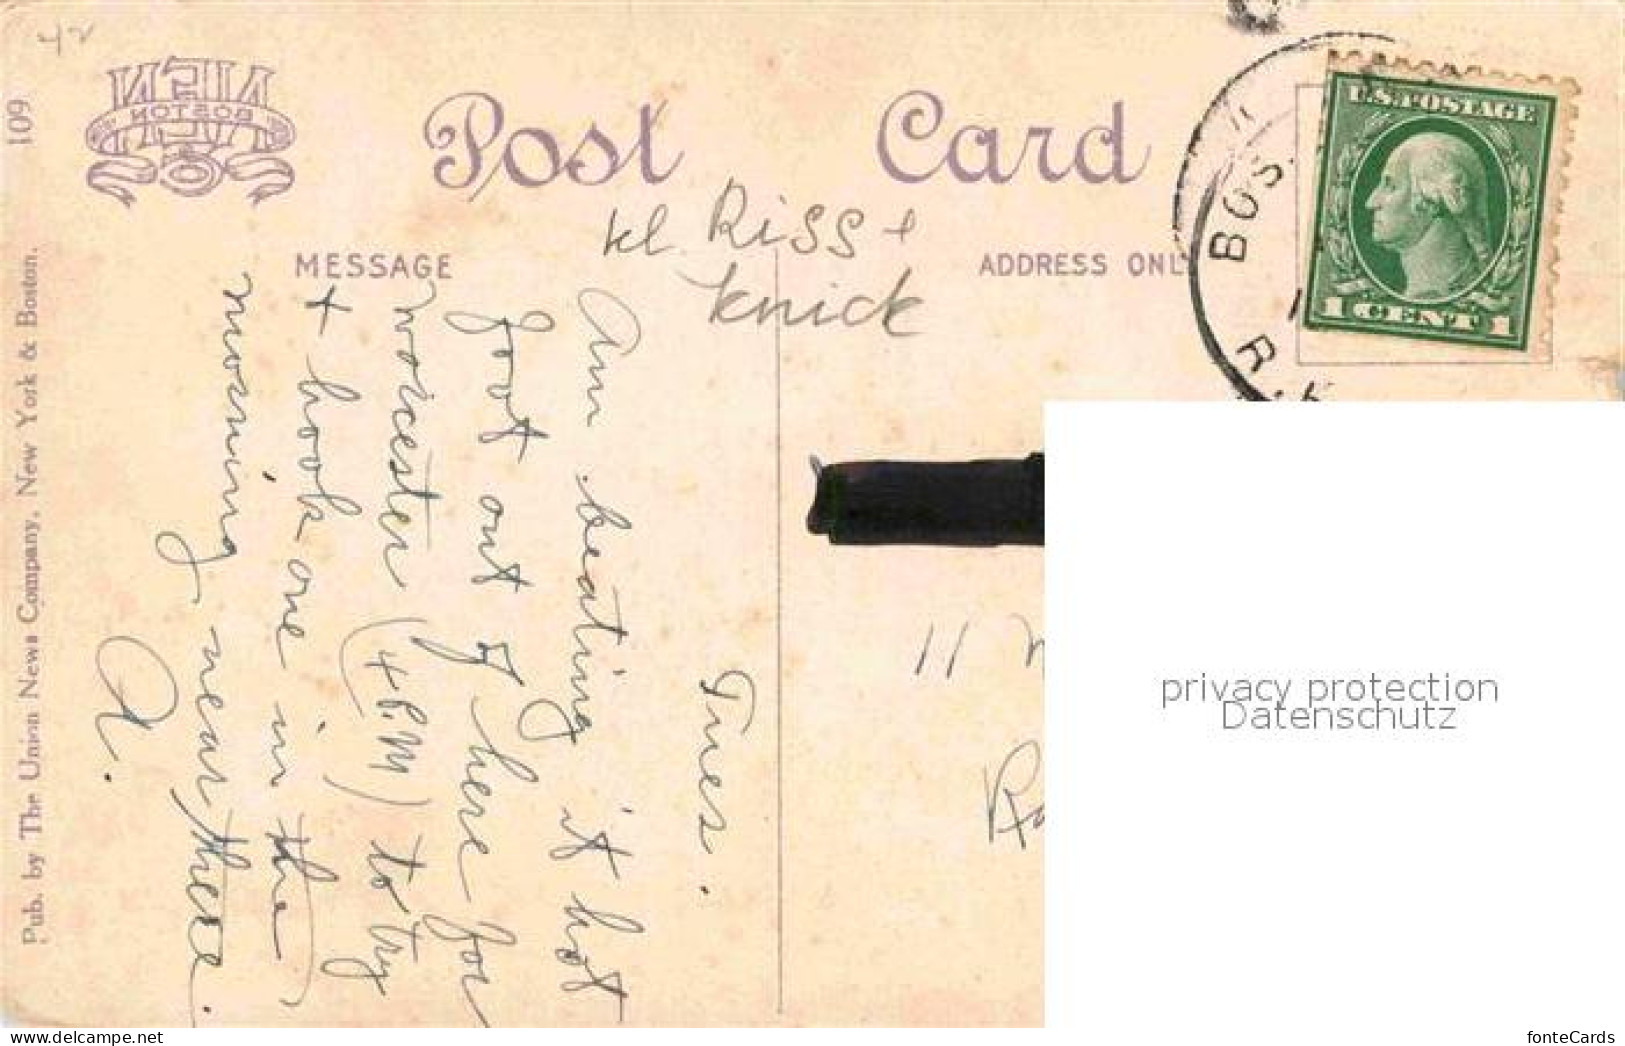 42
BOSTON
Post Card
kl. Riss +
knick
MESSAGE
ADDRESS ONL
U.S. POSTAGE
1 CENT 1
BOS
R
109
Pub. by The Union News Company, New York & Boston.
Tues.
Am beating it hot
foot out of here for
Worcester (4 P.M) to try
+ hook one in the
morning near there.
A.
11
privacy protection
Datenschutz
fonteCards